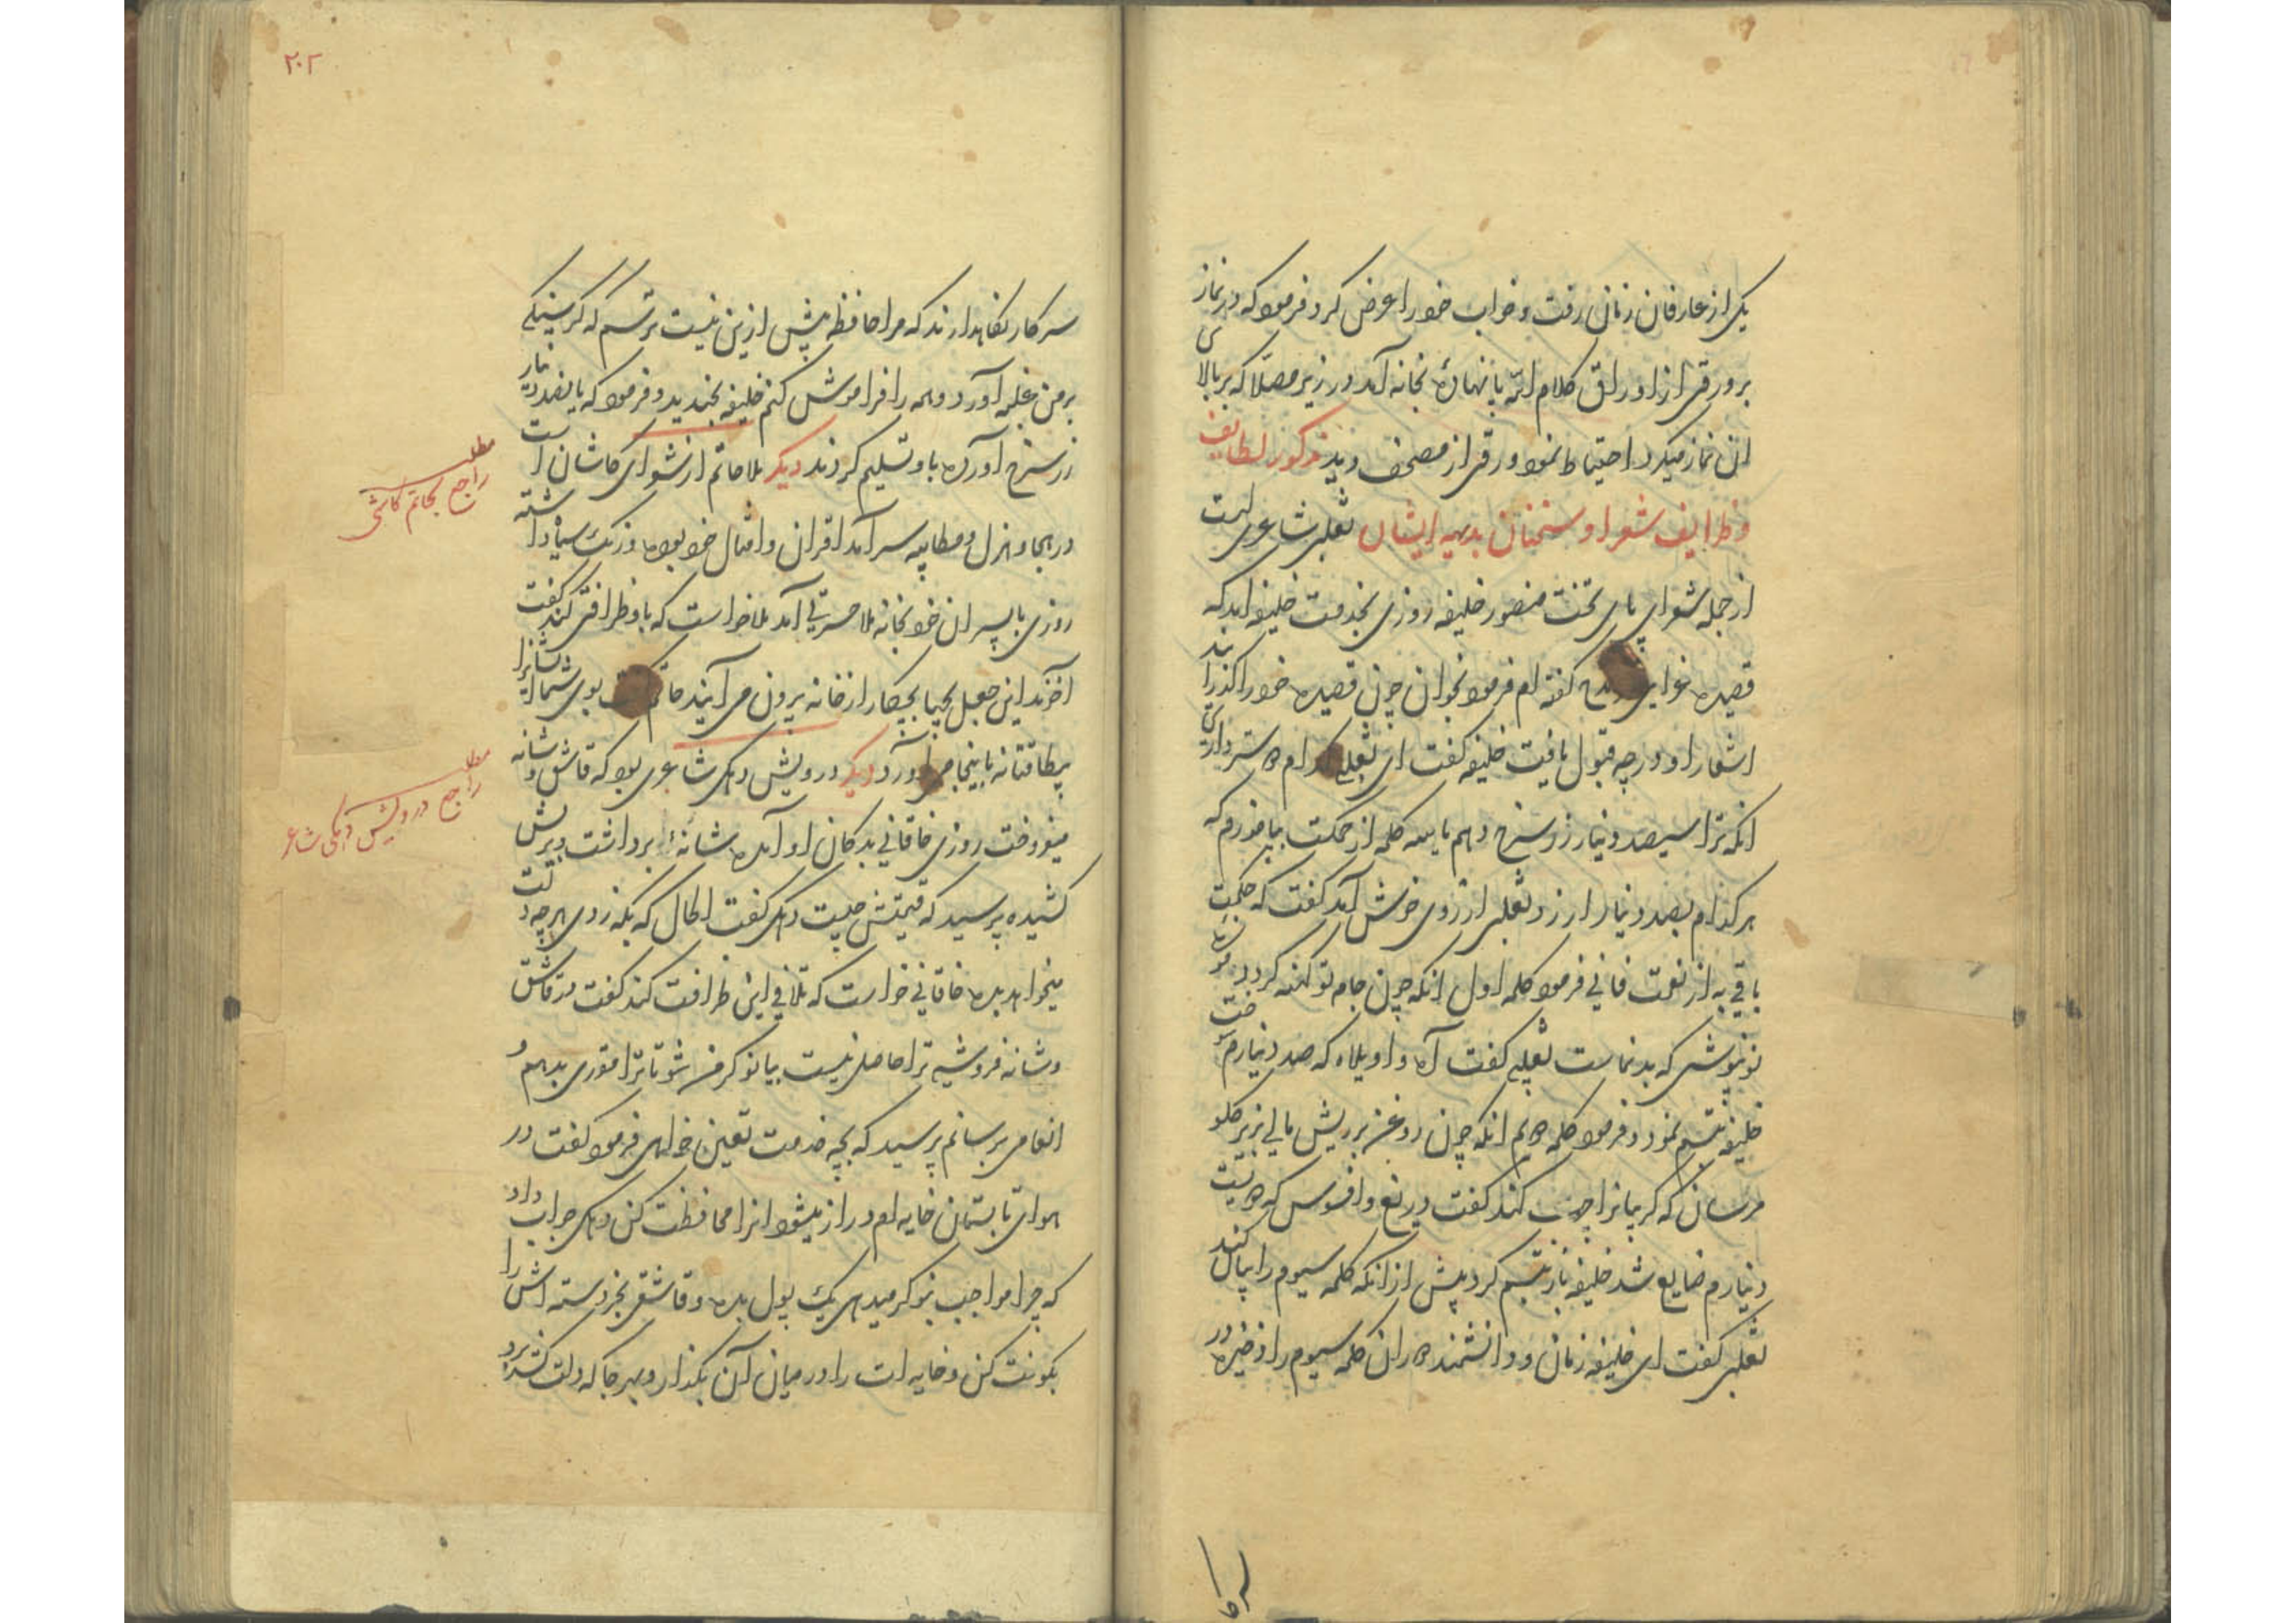 یکی از عارفان زمان رفت و خواب خود را عرض کرد فرمود که در نماز
بر ورقی از اوراق کلام الله پا نهاده بخانه آمد در زیر مصلا که بر بالای
آن نماز میکرد احتیاط نمود ورقی از مصحف دید مذکور لطایف
و ظرایف شعرا و سخنان بدیهه ایشان ثعلبی شاعری است
از جمله شعرای پای تخت منصور خلیفه روزی بخدمت خلیفه آمد که
قصیده غرایی گفته ام فرمود بخوان چون قصیده خود را گذرانید
اشعار او درجه قبول یافت خلیفه گفت ای ثعلبی کدام دوستر داری
آنکه ترا سیصد دینار زر سرخ دهم یا سه کلمه از حکمت بیاموزم که
هر کدام بصد دینار ارزد ثعلبی از روی خوش آمد گفت که حکمت
باقی به از نعمت فانی فرمود کلمه اول آنکه چون جامه تو کهنه گردد
نو نپوشی که بد نماست ثعلبی گفت آه واویلاه که صد دینارم سوخت
خلیفه تبسم نمود و فرمود کلمه دویم آنکه چون روغن بر ریش مالی بزیر گلو
مرسان که گریبانرا چرب کند گفت دریغ و افسوس که دویست
دینارم ضایع شد خلیفه باز تبسم کرد پیش از آنکه کلمه سیوم را بیان کند
ثعلبی گفت ای خلیفه زمان و دانشمند دوران کلمه سیوم را ذخیره در
سر کا
۲۰۲
سرکار نگاهدارند که مرا حافظه بیش ازین نیست ترسم که گرسنگی
بر من غلبه آورد و همه را فراموش کنم خلیفه بخندید و فرمود که پانصد دینار
زر سرخ آورده باو تسلیم کردند دیگر ملا حاتم از شعرای کاشان است
در هجا و هزل و مطایبه سرآمد اقران و امثال خود بوده و رنگ سیاه داشته
روزی با پسران خود بخانه ملا حسرتی آمد ملا خواست که با او ظرافتی کند گفت
آخوند این جعل بچها بچکار از خانه بیرون می آیند حاتم گفت بوی شما ایشانرا
بیطاقتانه باینجا می آورد دیگر درویش دهکی شاعری بود که قاشق و شانه
میفروخت روزی خاقانی بدکان او آمده شانهٔ برداشت و بریش
کشیده پرسید که قیمتش چیست دهکی گفت الحال که بکه زدی هرچه دلت
میخواهد بده خاقانی خواست که تلافی این ظرافت کند گفت در قاشق
و شانه فروشی ترا حاصلی نیست بیا نوکر من شو تا ترا مقرری بدهم و
انعامی برسانم پرسید که بچه خدمت تعیین خواهی فرمود گفت در
هوای تابستان خایه ام دراز میشود آنرا محافظت کن دهکی جواب داد
که چرا مواجب بنوکر میدهی یک پول بده و قاشقی بخر دسته اش را
بکونت کن و خایه ات را در میان آن بگذار و بهر جا که دلت کشد برو
مطلب
راجع بحاتم کاشی
مطلب
راجع درویش دهکی شاعر